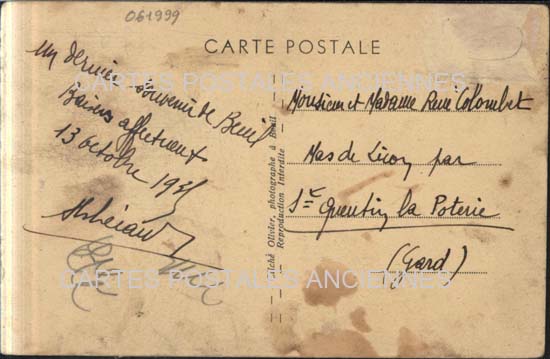 061999
CARTE POSTALE
un dernier souvenir de Beuil
Baisers affectueux
13 octobre
Monsieur et Madame René Colombet
Mas de par
St Quentin la Poterie
(Gard)
Cliché Olivier, photographe à Beuil
Reproduction Interdite
CARTES POSTALES ANCIENNES
CARTES POSTALES ANCIENNES